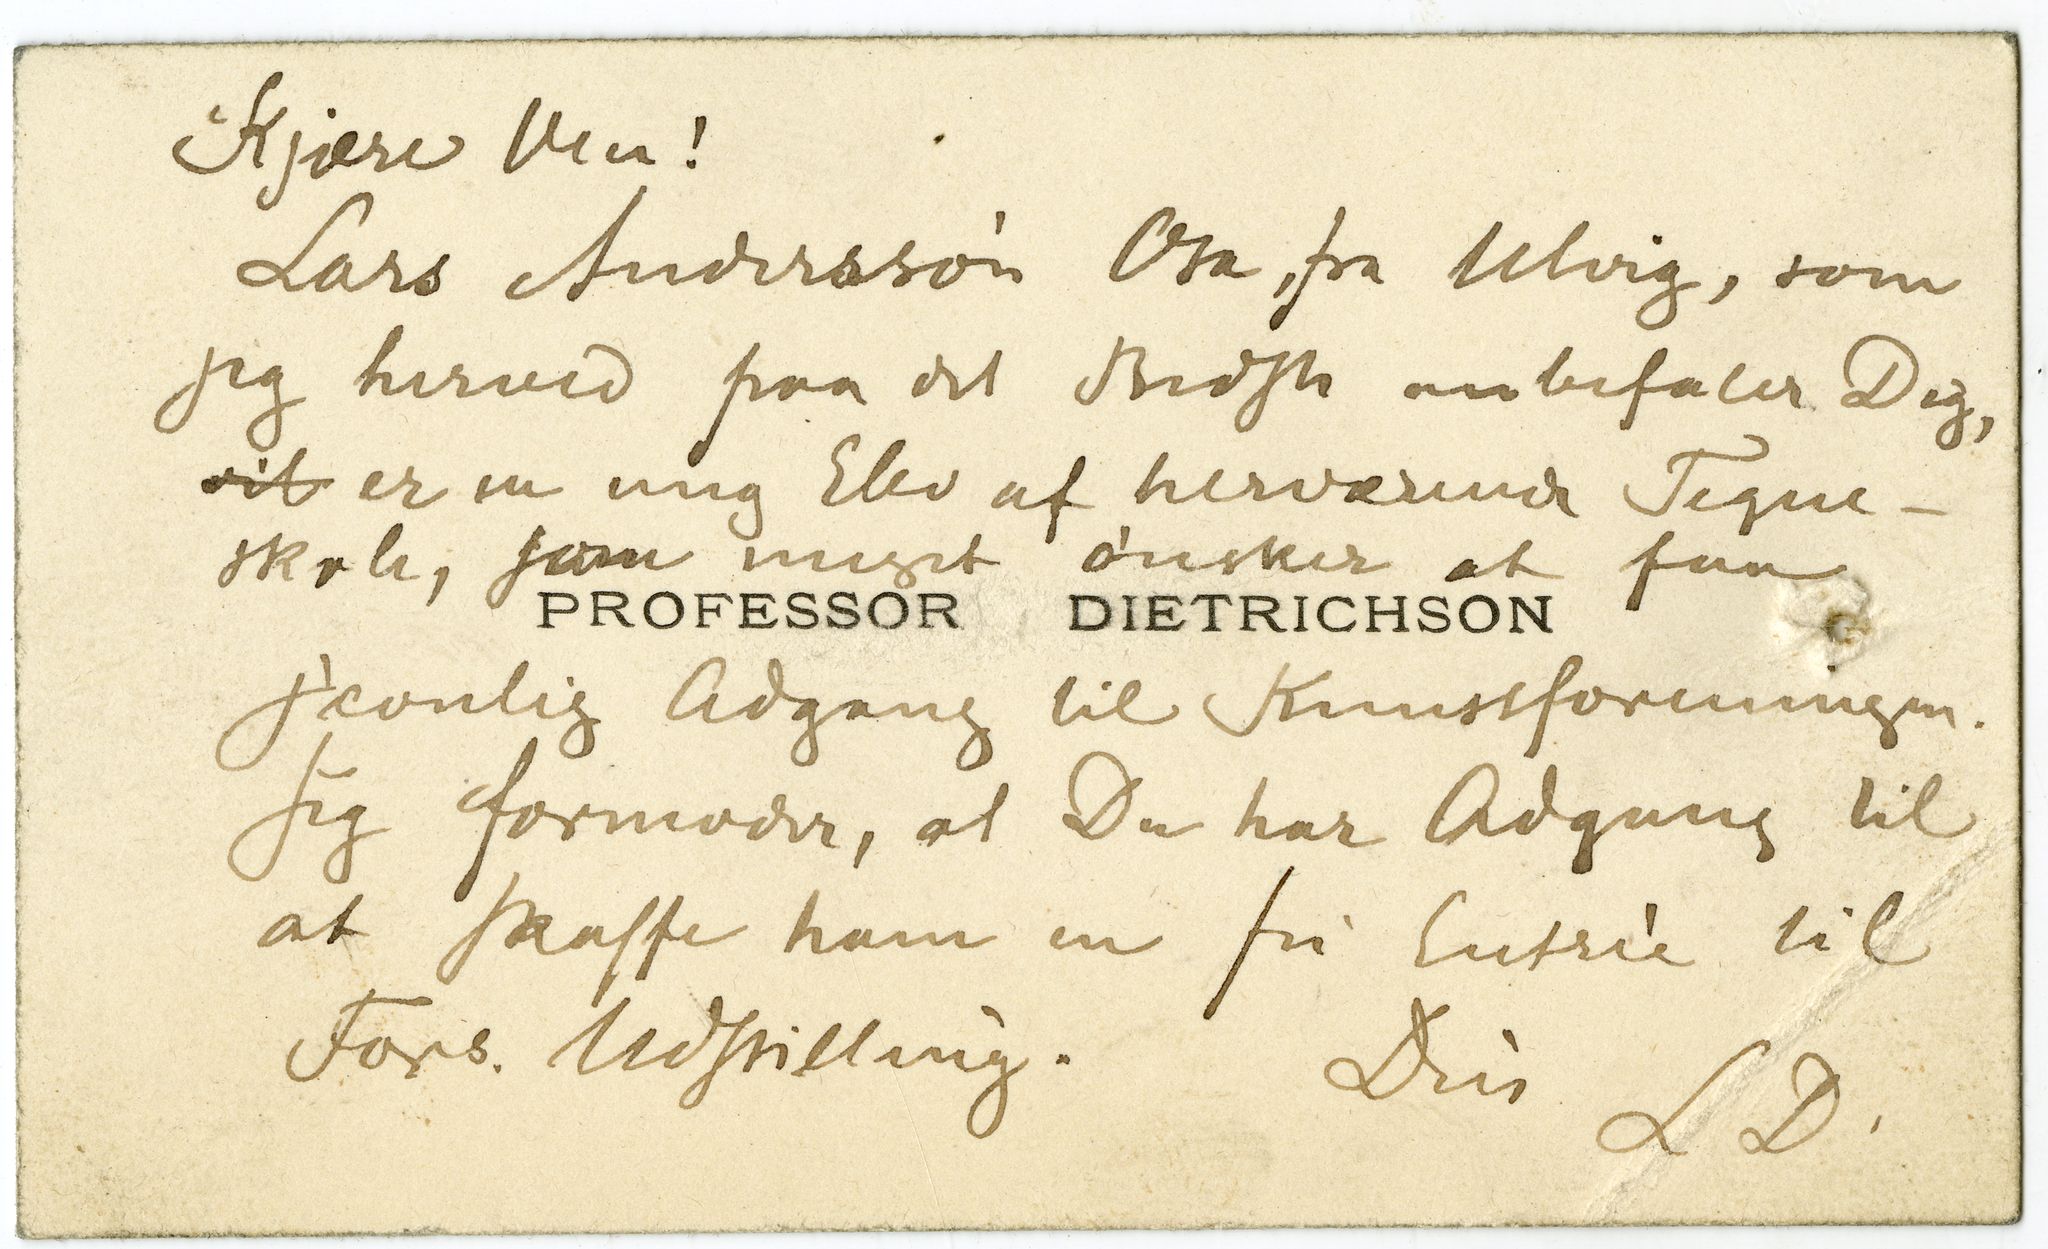 Kjære Ven!
Lars Anderssøn Osa, fra Ulvig, som
jeg herved paa det Bedste anbefaler Dig,
vil er en ung Elev af herværende Tegne-
skole, som meget ønsker at faa
PROFESSOR DIETRICHSON
jævnlig Adgang til Kunstforeningen.
Jeg formoder, at Du har Adgang til
at skaffe ham en fri Entrée til
Fors. Udstilling. Din
L D.